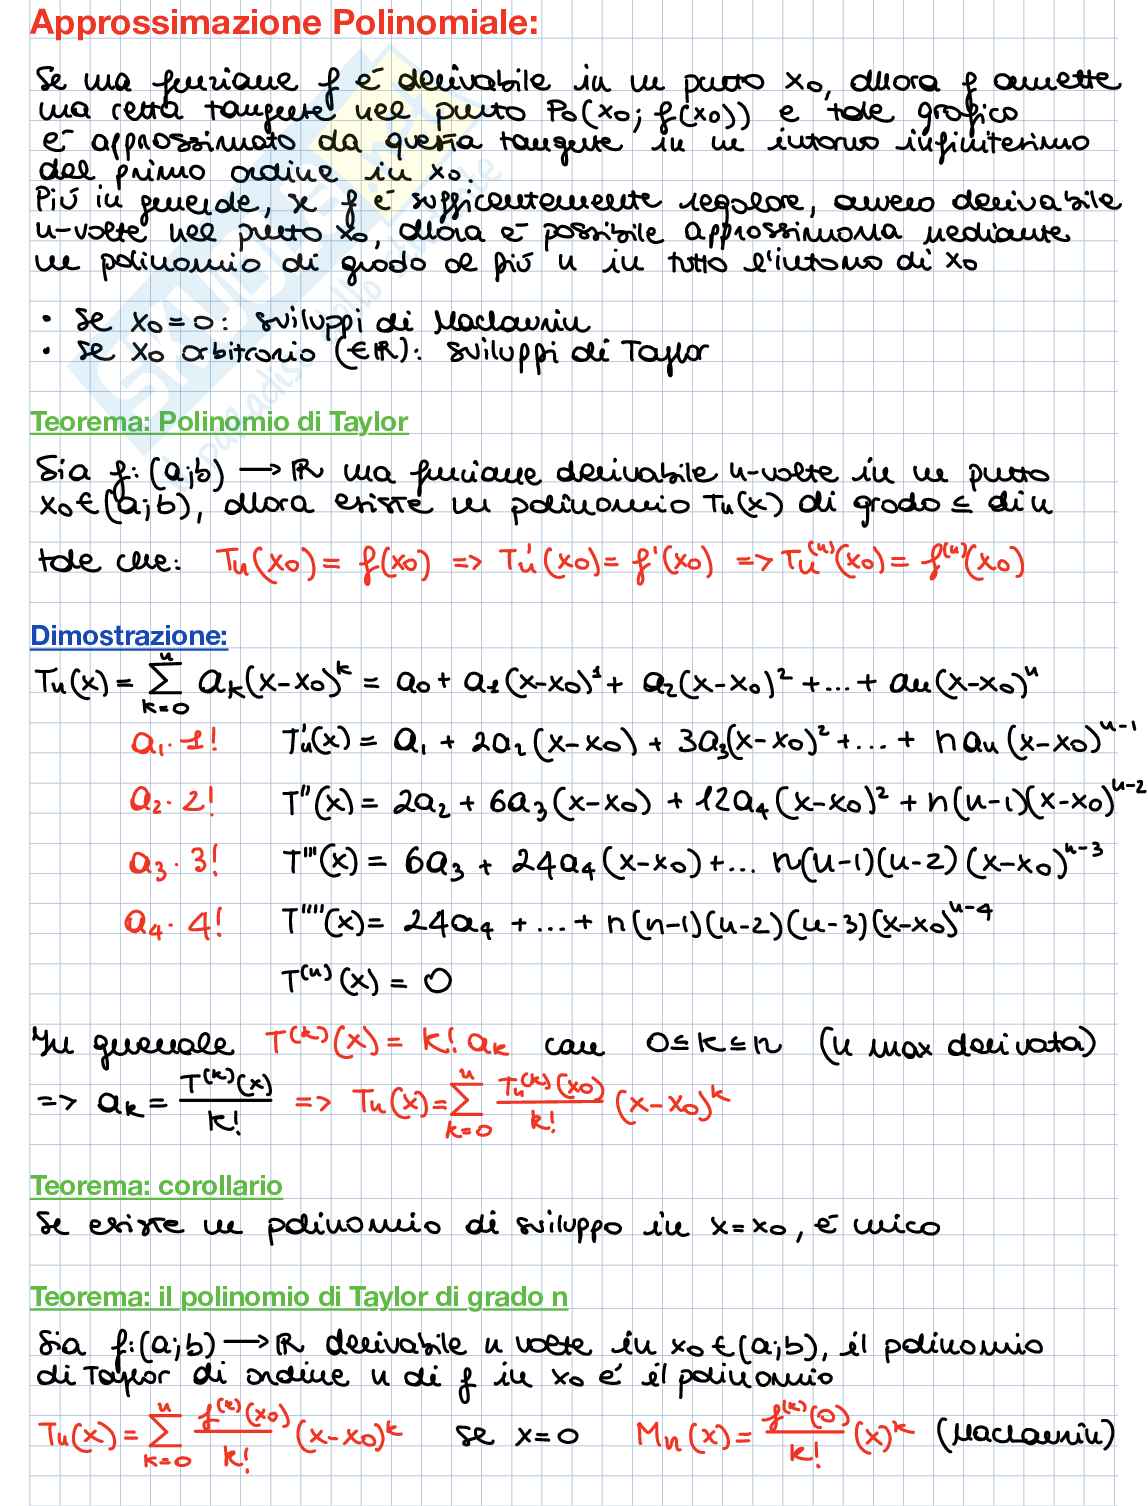 Approssimazione Polinomiale:
Se una funzione f é derivabile in un punto x₀, allora f ammette
una retta tangente nel punto P₀(x₀; f(x₀)) e tale grafico
é approssimato da questa tangente in un intorno infinitesimo
del primo ordine in x₀.
Piú in generale, se f é sufficentemente regolare, ovvero derivabile
n-volte nel punto x₀, allora é possibile approssimarla mediante
un polinomio di grado al piú n in tutto l'intorno di x₀
• se x₀=0: sviluppi di Maclaurin
• se x₀ arbitrario (∈ℝ): sviluppi di Taylor
Teorema: Polinomio di Taylor
Sia f: (a;b) → ℝ una funzione derivabile n-volte in un punto
x₀∈(a;b), allora esiste un polinomio Tn(x) di grado ≤ di n
tale che: Tn(x₀) = f(x₀) => Tn'(x₀) = f'(x₀) => Tn⁽ⁿ⁾(x₀) = f⁽ⁿ⁾(x₀)
Dimostrazione:
Tn(x) = ∑_{k=0}^{n} a_k(x-x₀)^k = a₀ + a₁(x-x₀)¹ + a₂(x-x₀)² + ... + an(x-x₀)ⁿ
a₁·1! Tn'(x) = a₁ + 2a₂(x-x₀) + 3a₃(x-x₀)² + ... + n an(x-x₀)ⁿ⁻¹
a₂·2! T''(x) = 2a₂ + 6a₃(x-x₀) + 12a₄(x-x₀)² + n(n-1)(x-x₀)ⁿ⁻²
a₃·3! T'''(x) = 6a₃ + 24a₄(x-x₀) + ... n(n-1)(n-2)(x-x₀)ⁿ⁻³
a₄·4! T''''(x) = 24a₄ + ... + n(n-1)(n-2)(n-3)(x-x₀)ⁿ⁻⁴
T⁽ⁿ⁾(x) = 0
In generale T⁽ᵏ⁾(x) = k! a_k con 0≤k≤n (n max derivata)
=> a_k = T⁽ᵏ⁾(x)/k! => Tn(x) = ∑_{k=0}^{n} Tn⁽ᵏ⁾(x₀)/k! (x-x₀)^k
Teorema: corollario
Se esiste un polinomio di sviluppo in x=x₀, é unico
Teorema: il polinomio di Taylor di grado n
Sia f:(a;b) → ℝ derivabile n volte in x₀∈(a;b), il polinomio
di Taylor di ordine n di f in x₀ é il polinomio
Tn(x) = ∑_{k=0}^{n} f⁽ᵏ⁾(x₀)/k! (x-x₀)^k se x=0 Mn(x) = f⁽ᵏ⁾(0)/k! (x)^k (Maclaurin)